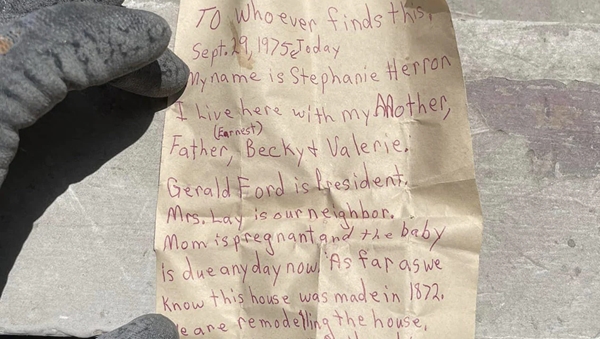 To whoever finds this,
Sept. 29, 1975 Today
My name is Stephanie Herron
I Live here with my Mother,
(Earnest)
Father, Becky & Valerie.
Gerald Ford is President.
Mrs. Lay is our neighbor.
Mom is pregnant and the baby
is due any day now. As far as we
know this house was made in 1872.
We are remodelling the house.